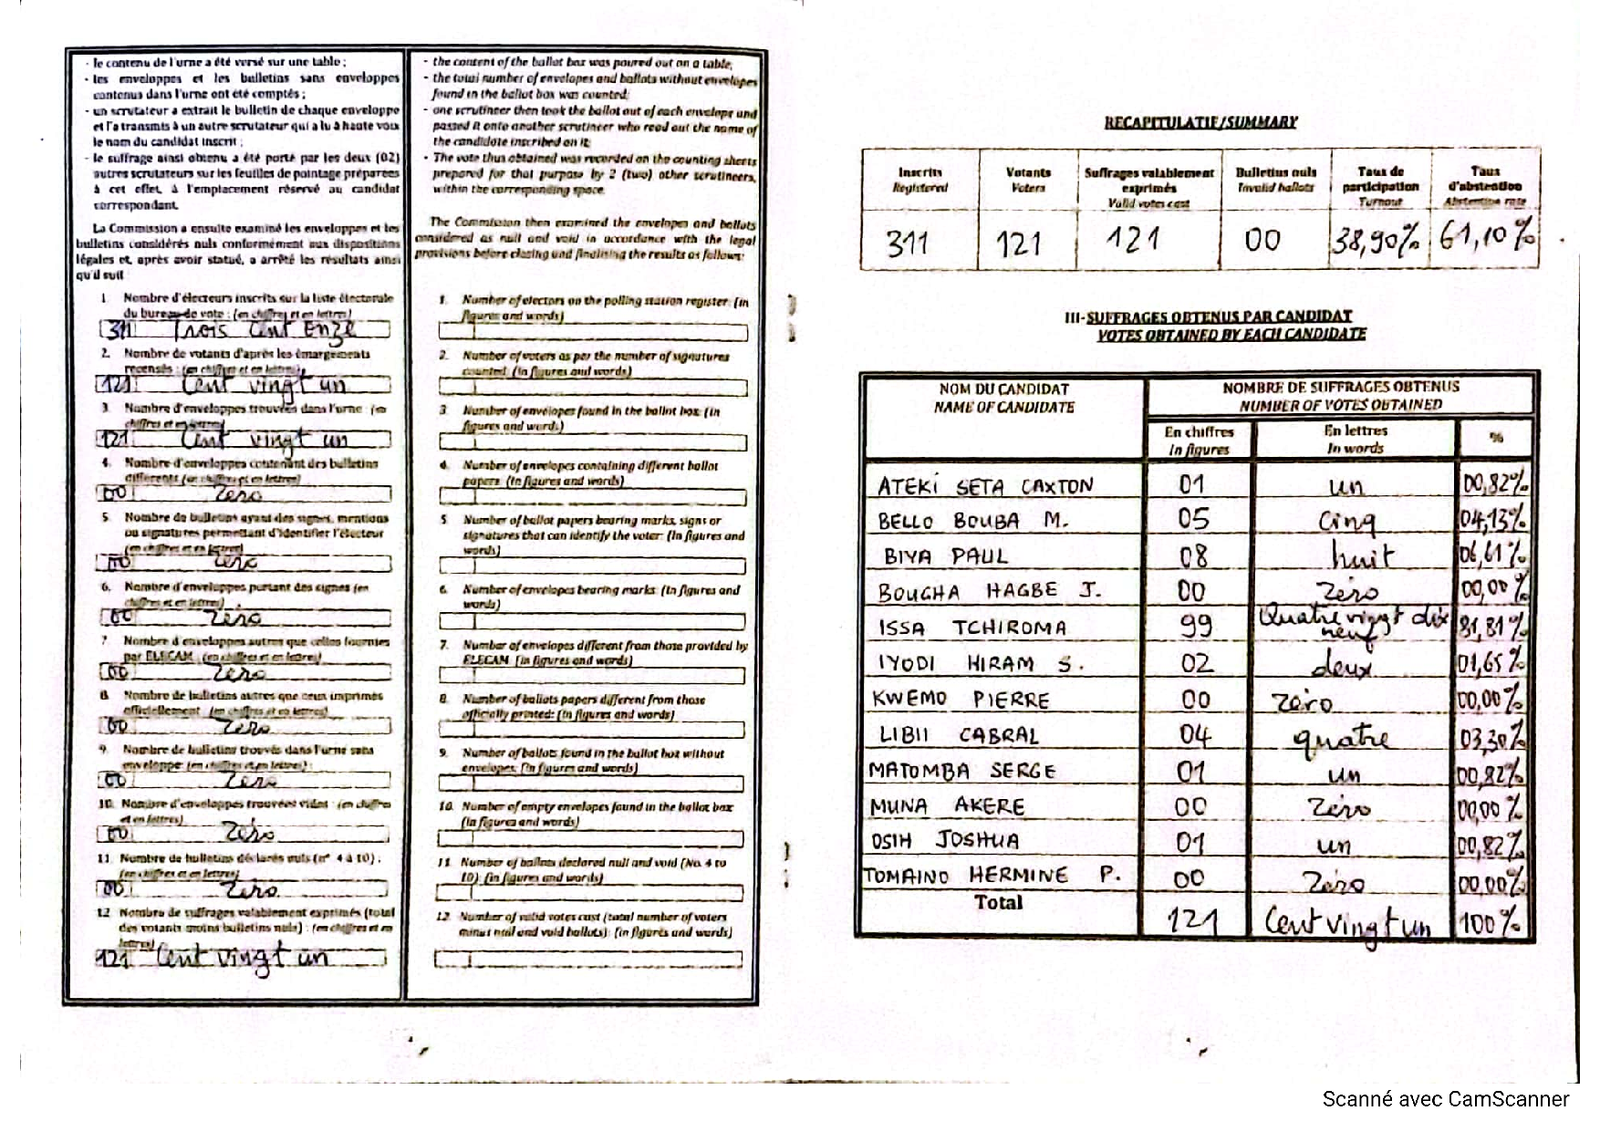 - le contenu de l'urne a été versé sur une table ;
- les enveloppes et les bulletins sans enveloppes
contenus dans l'urne ont été comptés ;
- un scrutateur a extrait le bulletin de chaque enveloppe
et l'a transmis à un autre scrutateur qui a lu à haute voix
le nom du candidat inscrit ;
- le suffrage ainsi obtenu a été porté par les deux (02)
autres scrutateurs sur les feuilles de pointage préparées
à cet effet, à l'emplacement réservé au candidat
correspondant.
La Commission a ensuite examiné les enveloppes et les
bulletins considérés nuls conformément aux dispositions
légales et, après avoir statué, a arrêté les résultats ainsi
qu'il suit
1. Nombre d'électeurs inscrits sur la liste électorale
du bureau de vote : (en chiffres et en lettres)
311 Trois Cent Onze
2. Nombre de votants d'après les émargements
recensés : (en chiffres et en lettres)
121 Cent vingt un
3. Nombre d'enveloppes trouvées dans l'urne : (en
chiffres et en lettres)
121 Cent vingt un
4. Nombre d'enveloppes contenant des bulletins
différents (en chiffres et en lettres)
00 Zéro
5. Nombre de bulletins ayant des signes, mentions
ou signatures permettant d'identifier l'électeur
(en chiffres et en lettres)
00 Zéro
6. Nombre d'enveloppes portant des signes (en
chiffres et en lettres)
00 Zéro
7. Nombre d'enveloppes autres que celles fournies
par ELECAM (en chiffres et en lettres)
00 Zéro
8. Nombre de bulletins autres que ceux imprimés
officiellement (en chiffres et en lettres)
00 Zéro
9. Nombre de bulletins trouvés dans l'urne sans
enveloppe (en chiffres et en lettres) :
00 Zéro
10. Nombre d'enveloppes trouvées vides : (en chiffres
et en lettres)
00 Zéro
11. Nombre de bulletins déclarés nuls (n° 4 à 10) :
(en chiffres et en lettres)
00 Zéro
12 Nombre de suffrages valablement exprimés (total
des votants moins bulletins nuls) : (en chiffres et en
lettres)
121 Cent vingt un
- the content of the ballot box was poured out on a table;
- the total number of envelopes and ballots without envelopes
found in the ballot box was counted;
- one scrutineer then took the ballot out of each envelope and
passed it onto another scrutineer who read out the name of
the candidate inscribed on it;
- The vote thus obtained was recorded on the counting sheets
prepared for that purpose by 2 (two) other scrutineers,
within the corresponding space.
The Commission then examined the envelopes and ballots
considered as null and void in accordance with the legal
provisions before closing and finalising the results as follows:
1. Number of electors on the polling station register: (in
figures and words)
2. Number of voters as per the number of signatures
counted: (in figures and words)
3. Number of envelopes found in the ballot box: (in
figures and words)
4. Number of envelopes containing different ballot
papers: (in figures and words)
5. Number of ballot papers bearing marks, signs or
signatures that can identify the voter: (In figures and
words)
6. Number of envelopes bearing marks: (in figures and
words)
7. Number of envelopes different from those provided by
ELECAM (in figures and words)
8. Number of ballots papers different from those
officially printed: (in figures and words)
9. Number of ballots found in the ballot box without
envelopes: (in figures and words)
10. Number of empty envelopes found in the ballot box
(in figures and words)
11. Number of ballots declared null and void (No. 4 to
10): (in figures and words)
12. Number of valid votes cast (total number of voters
minus null and void ballots): (in figures and words)
RECAPITULATIF/SUMMARY
Inscrits Votants Suffrages valablement exprimés Bulletins nuls Taux de participation Taux d'abstention
Registered Voters Valid votes cast Invalid ballots Turnout Abstention rate
311 121 121 00 38,90% 61,10%
III-SUFFRAGES OBTENUS PAR CANDIDAT
VOTES OBTAINED BY EACH CANDIDATE
NOM DU CANDIDAT NOMBRE DE SUFFRAGES OBTENUS
NAME OF CANDIDATE NUMBER OF VOTES OBTAINED
En chiffres En lettres %
In figures In words
ATEKI SETA CAXTON 01 un 00,82%
BELLO BOUBA M. 05 Cinq 04,13%
BIYA PAUL 08 huit 06,61%
BOUGHA HAGBE J. 00 Zéro 00,00%
ISSA TCHIROMA 99 Quatre vingt dix neuf 81,81%
IYODI HIRAM S. 02 deux 01,65%
KWEMO PIERRE 00 Zéro 00,00%
LIBII CABRAL 04 quatre 03,30%
MATOMBA SERGE 01 un 00,82%
MUNA AKERE 00 Zéro 00,00%
OSIH JOSHUA 01 un 00,82%
TOMAINO HERMINE P. 00 Zéro 00,00%
Total 121 Cent vingt un 100%
Scanné avec CamScanner